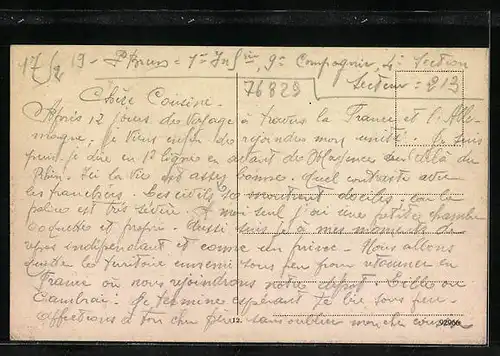 17/2 19 - 1re Inf ie, 9e Compagnie, 4e Section
Secteur = 213
76829
Chère Cousine.
Après 12 jours de voyage à travers la France et l'Alle-
magne, je viens enfin de rejoindre mon unité. Je suis
je dire en 1e ligne en avant de Mayence au delà du
Rhin. Ici la vie est assez bonne. Quel contraste avec
les tranchées. Les civils se montrent dociles, car la
police est très sévère. A moi seul, j'ai une petite chambre
coquette et propre. Aussi suis je à mes moments de
repos indépendant et comme un prince. Nous allons
quitter le territoire ennemi sous peu pour retourner en
France où nous rejoindrons notre dépôt: Lille ou
Cambrai. Je termine espérant te lire sous peu.
Affections à ton cher frère sans oublier mon cher cousin
12. 92966